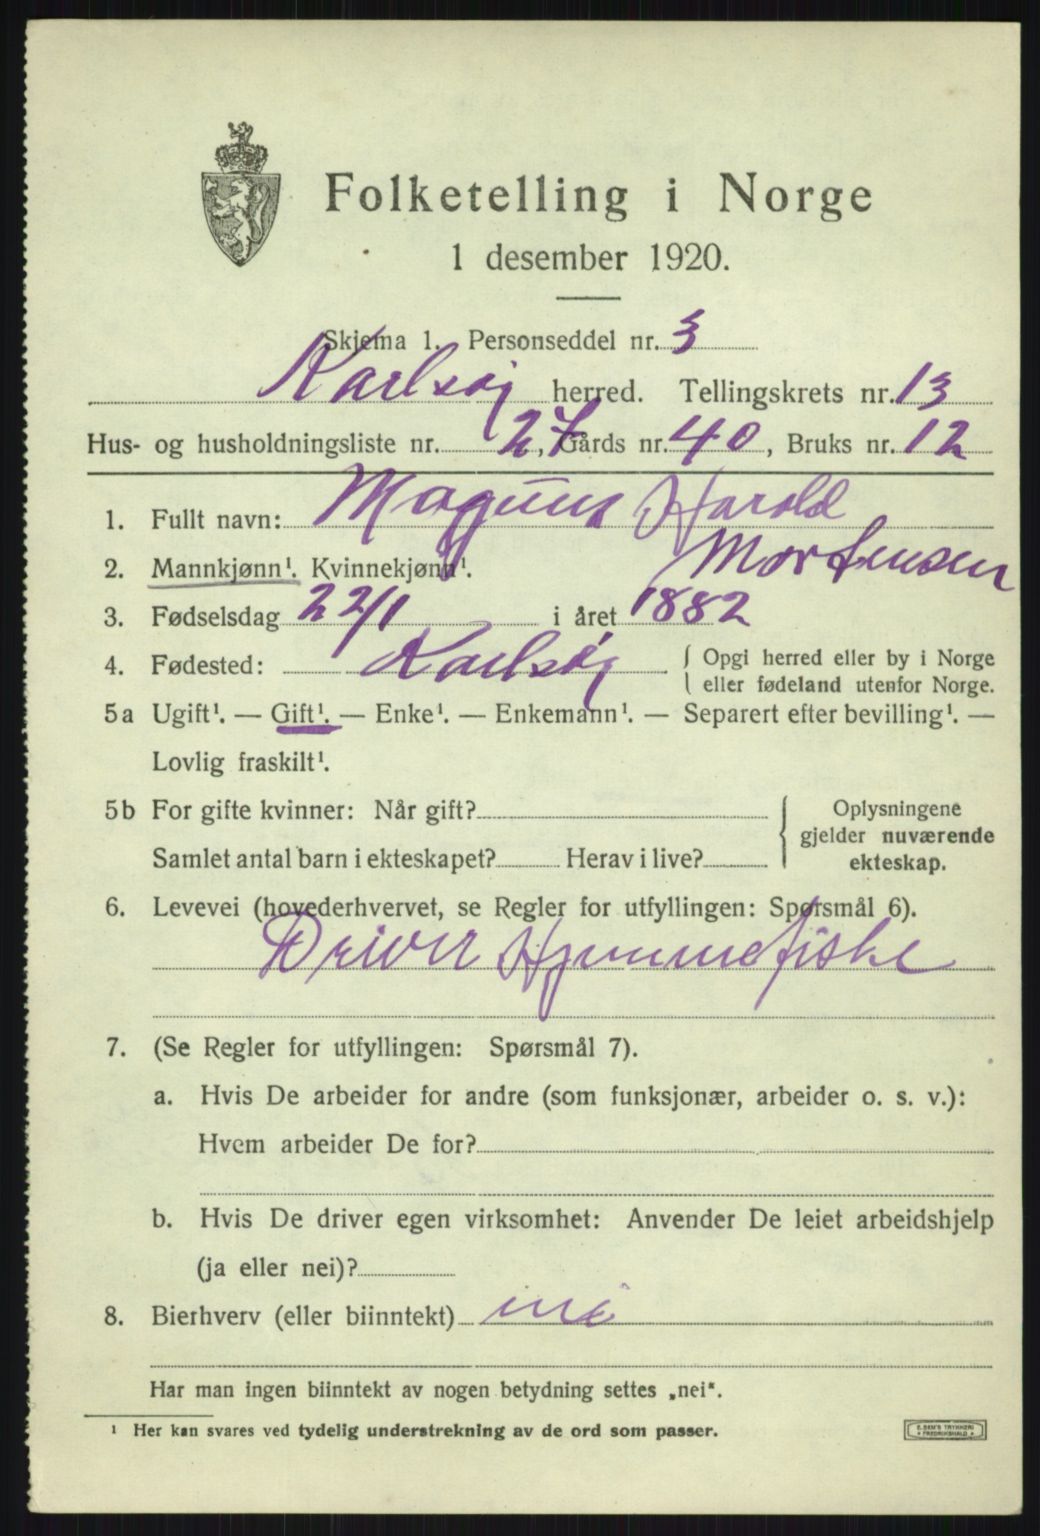 Folketelling i Norge
1 desember 1920.
Skjema 1. Personseddel nr. 3
Karlsøy herred. Tellingskrets nr. 13
Hus- og husholdningsliste nr. 27, Gårds nr. 40, Bruks nr. 12
1. Fullt navn: Magnus Harold
Mortensen
2. Mannkjønn¹. Kvinnekjønn¹.
3. Fødselsdag 22/1 i året 1882
4. Fødested: Karlsøy { Opgi herred eller by i Norge
eller fødeland utenfor Norge.
5a Ugift¹. — Gift¹. — Enke¹. — Enkemann¹. — Separert efter bevilling¹. —
Lovlig fraskilt¹.
5b For gifte kvinner: Når gift? { Oplysningene
gjelder nuværende
Samlet antal barn i ekteskapet? Herav i live? ekteskap.
6. Levevei (hovederhvervet, se Regler for utfyllingen: Spørsmål 6).
Driver Hjemmefiske
7. (Se Regler for utfyllingen: Spørsmål 7).
a. Hvis De arbeider for andre (som funksjonær, arbeider o. s. v.):
Hvem arbeider De for?
b. Hvis De driver egen virksomhet: Anvender De leiet arbeidshjelp
(ja eller nei)?
8. Bierhverv (eller biinntekt) nei
Har man ingen biinntekt av nogen betydning settes „nei".
¹ Her kan svares ved tydelig understrekning av de ord som passer.
E. SEM'S TRYKKERI
FREDRIKSHALD